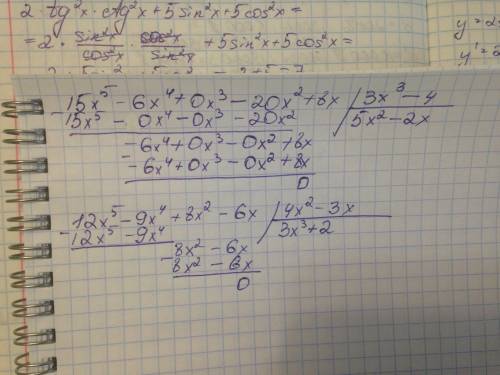 2 tg²x · ctg²x + 5sin²x + 5cos²x =
= 2 · sin²x/cos²x · cos²x/sin²x + 5sin²x + 5cos²x =
y = 2
y' =
15x⁵ - 6x⁴ + 0x³ - 20x² + 8x | 3x³ - 4
- 15x⁵ - 0x⁴ - 0x³ - 20x² | 5x² - 2x
-6x⁴ + 0x³ - 0x² + 8x
- -6x⁴ + 0x³ - 0x² + 8x
0
12x⁵ - 9x⁴ + 8x² - 6x | 4x² - 3x
- 12x⁵ - 9x⁴ | 3x³ + 2
8x² - 6x
- 8x² - 6x
0